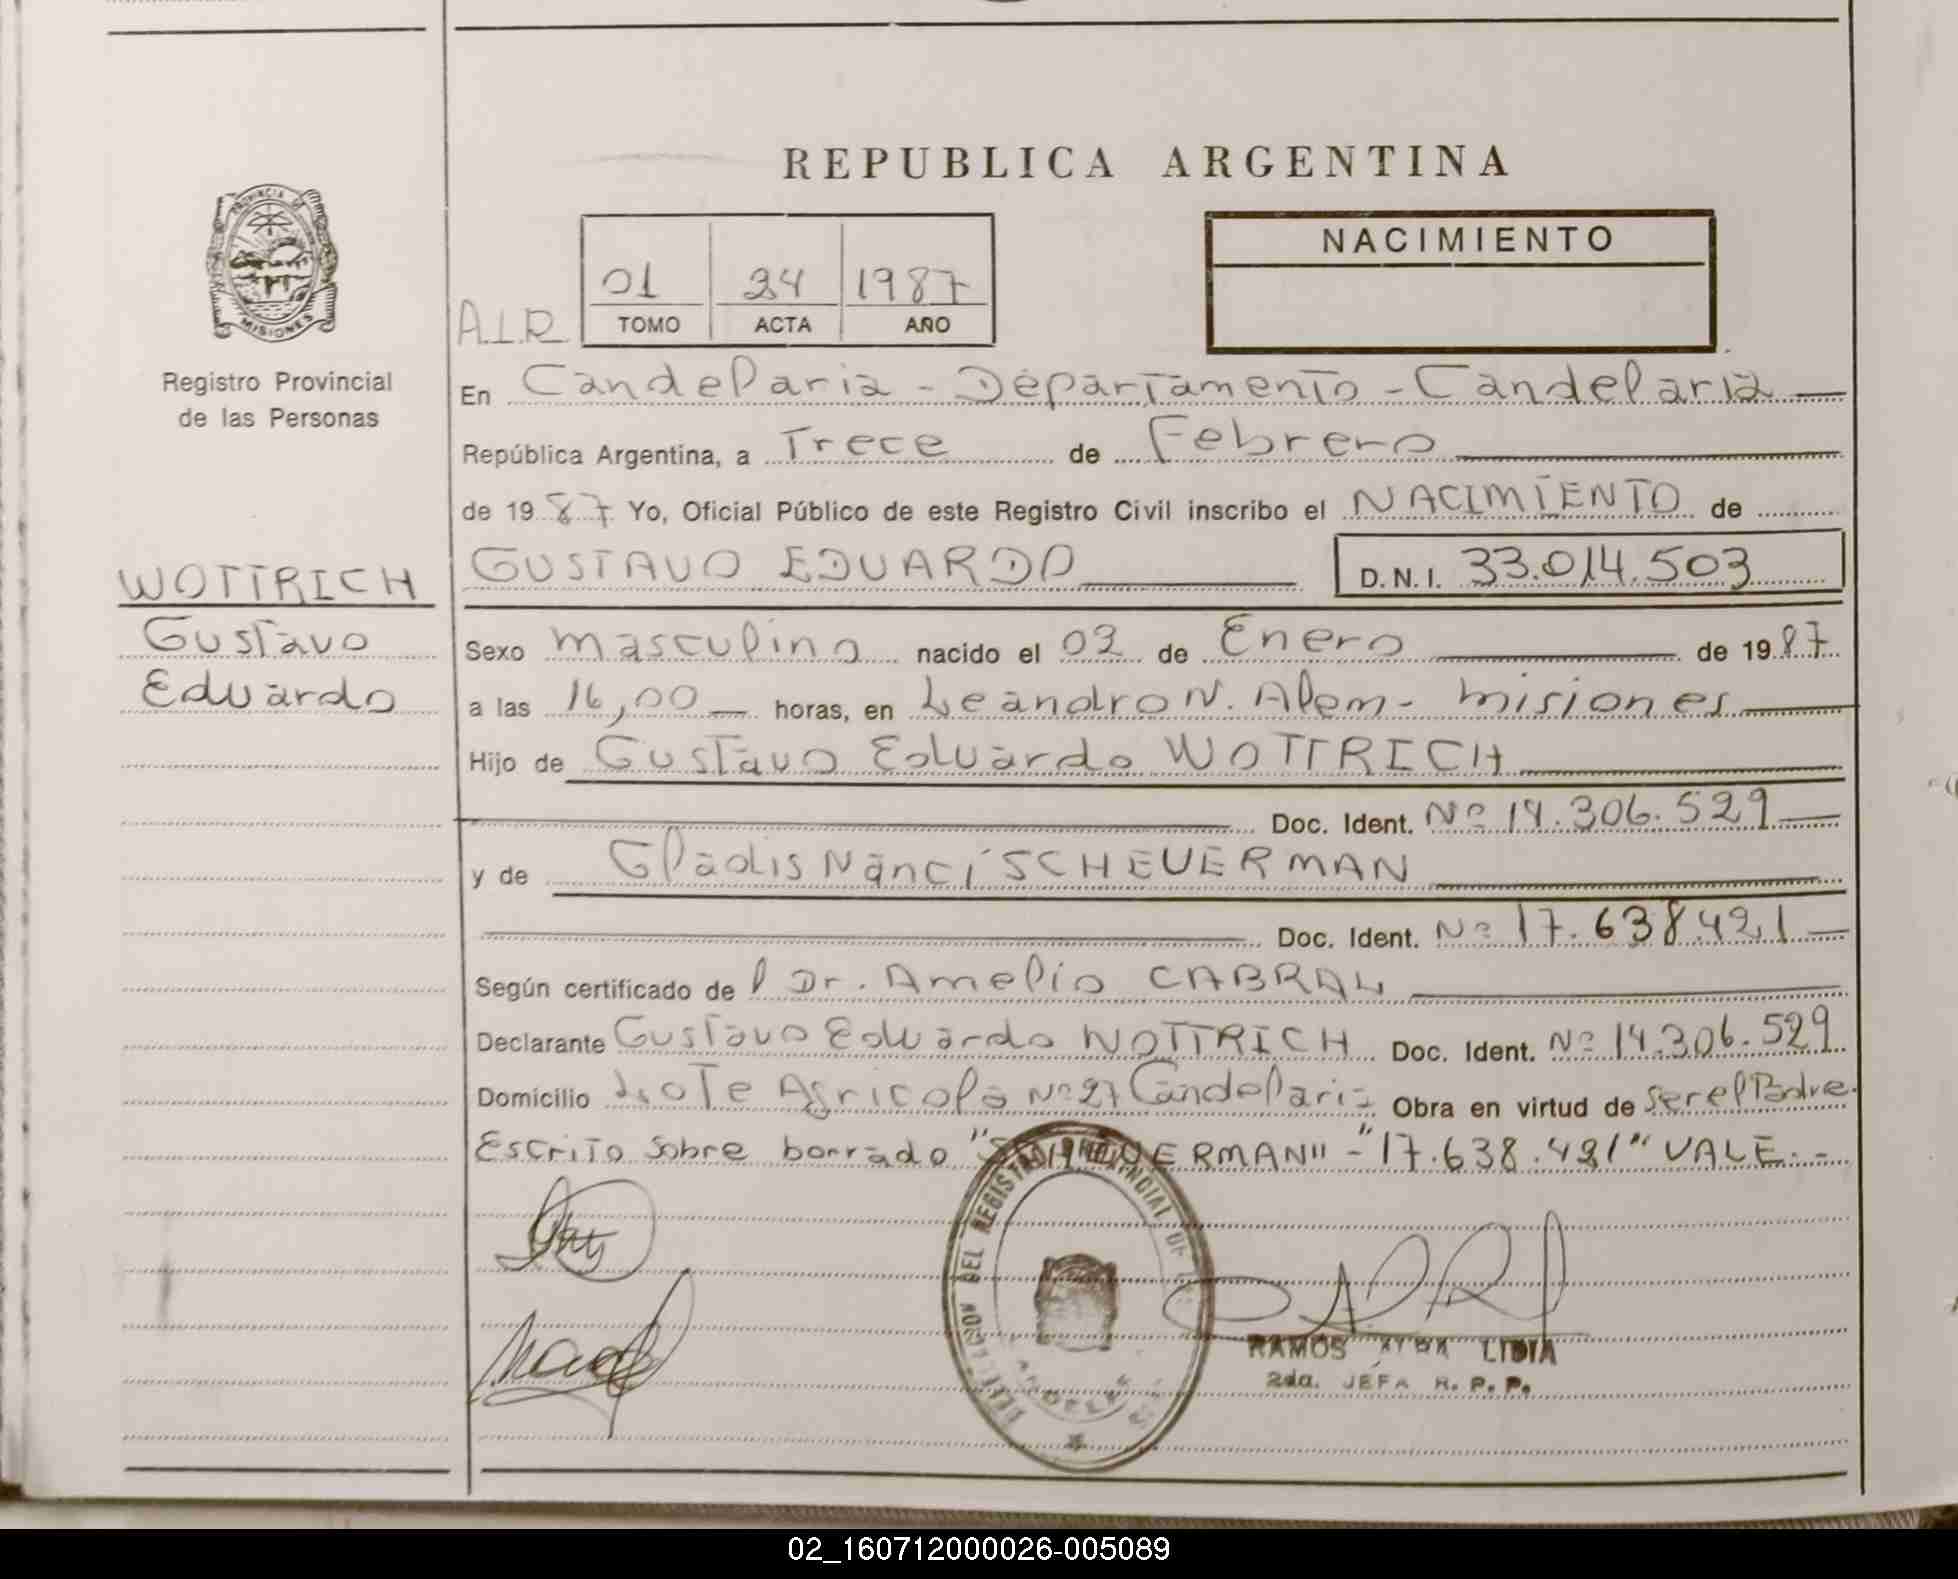 REPUBLICA ARGENTINA
PROVINCIA DE
MISIONES
Registro Provincial
de las Personas
01 24 1987
TOMO ACTA AÑO
NACIMIENTO
En Candelaria - Departamento - Candelaria
República Argentina, a Trece de Febrero
de 1987 Yo, Oficial Público de este Registro Civil inscribo el NACIMIENTO de
GUSTAVO EDUARDO D.N.I. 33.014.503
WOTTRICH
Gustavo
Eduardo
Sexo masculino nacido el 02 de Enero de 1987
a las 16,00 horas, en Leandro N. Alem - misiones
Hijo de Gustavo Eduardo WOTTRICH
Doc. Ident. Nº 14.306.529
y de Gladis Nanci SCHEUERMAN
Doc. Ident. Nº 17.638.421
Según certificado de l Dr. Amelio CABRAL
Declarante Gustavo Eduardo WOTTRICH Doc. Ident. Nº 14.306.529
Domicilio Lote Agricola Nº 27 Candelaria Obra en virtud de ser el Padre.
Escrito sobre borrado "SCHEUERMAN" - "17.638.421" VALE. -
DELEGACION DEL REGISTRO PROVINCIAL DE
RAMOS LIDIA
2da. JEFA R. P. P.
02_160712000026-005089